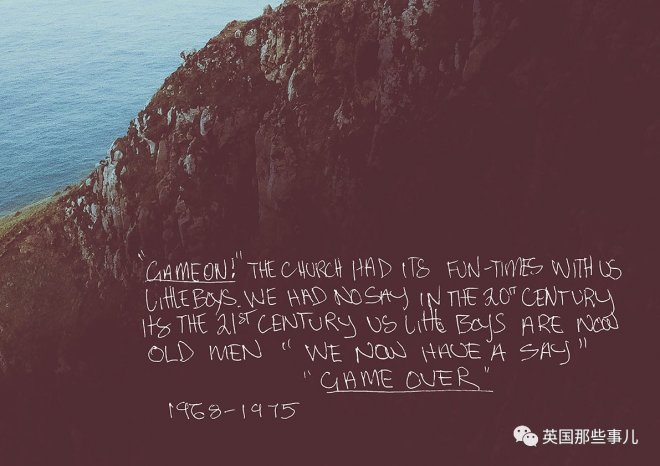 "GAME ON!" THE CHURCH HAD ITS FUN-TIMES WITH US
LITTLE BOYS. WE HAD NO SAY IN THE 20ST CENTURY
ITS THE 21ST CENTURY US LITTLE BOYS ARE NOW
OLD MEN "WE NOW HAVE A SAY"
"GAME OVER"
1968-1975
英国那些事儿